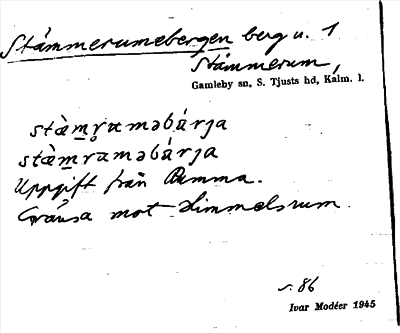 Stämmerumebergen berg u. 1
Stämmerum,
Gamleby sn, S. Tjusts hd, Kalm. l.
stæ̀m̥r̥uməbárja
stæ̀m̥ruməbárja
Uppgift från Rumma.
Gränsa mot Himmelsrum.
s. 86
Ivar Modéer 1945